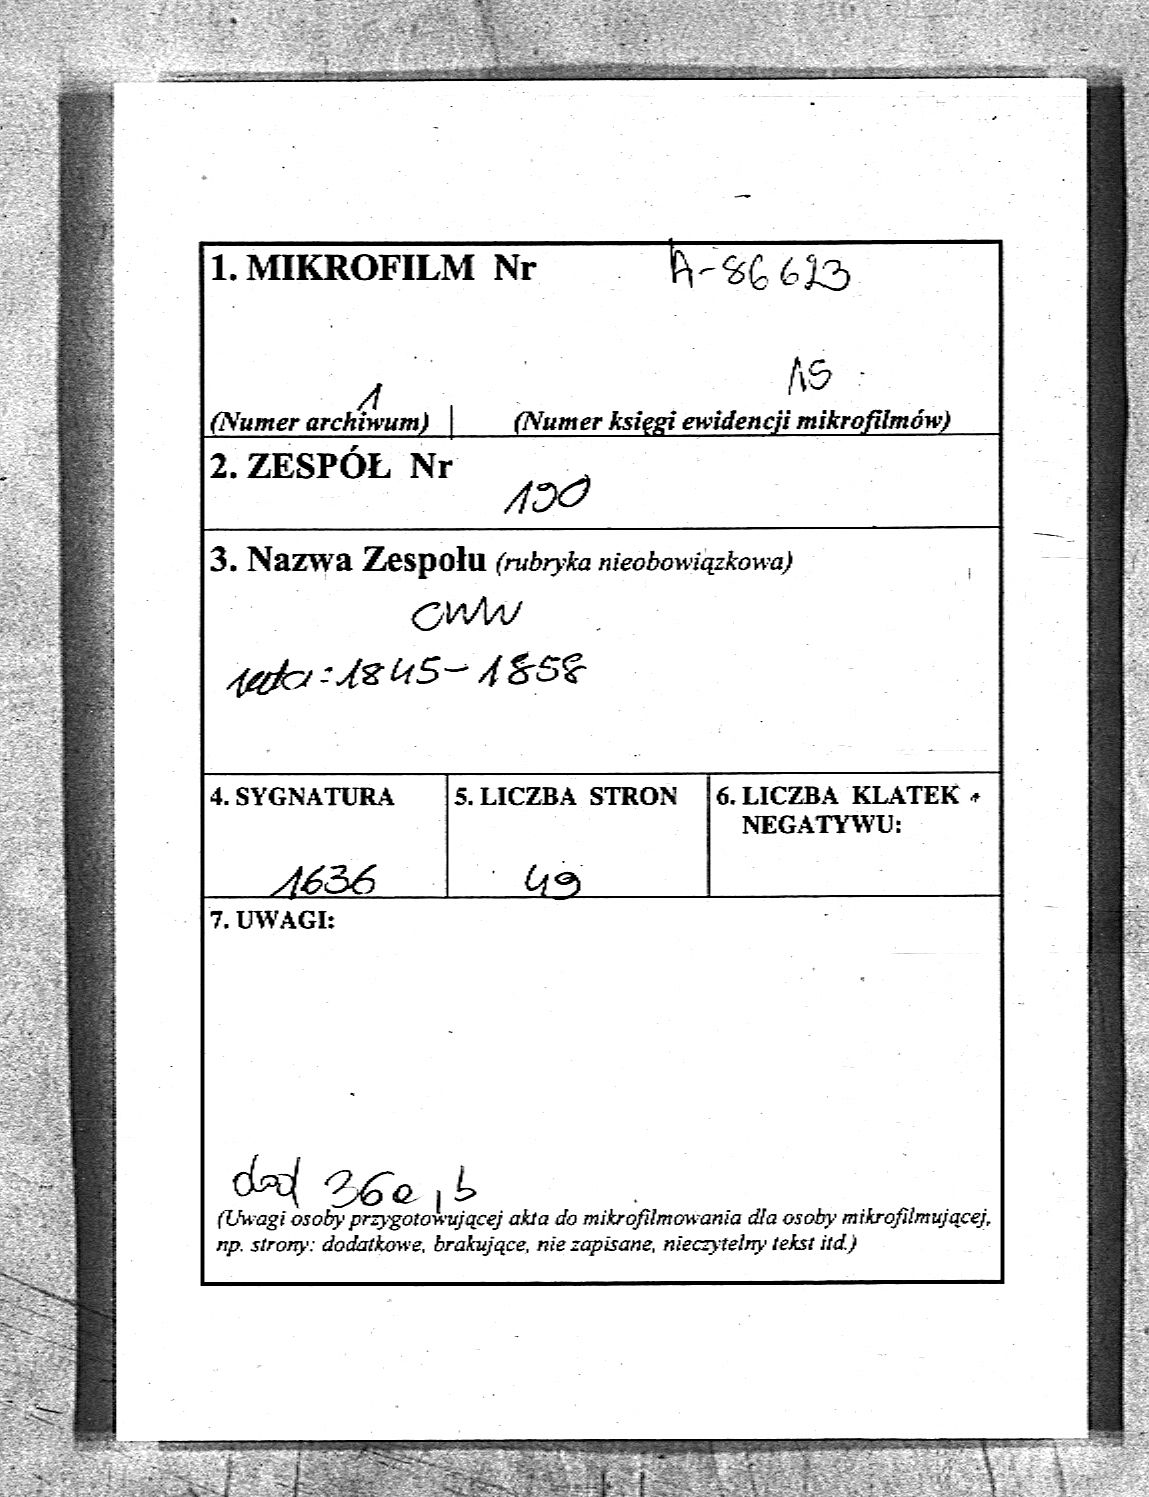 1. MIKROFILM Nr A-86623
15
1
(Numer archiwum) (Numer księgi ewidencji mikrofilmów)
2. ZESPÓŁ Nr
190
3. Nazwa Zespołu (rubryka nieobowiązkowa)
CWW
1845-1858
4. SYGNATURA
1636
5. LICZBA STRON
49
6. LICZBA KLATEK
NEGATYWU:
7. UWAGI:
dod 36a, b
(Uwagi osoby przygotowującej akta do mikrofilmowania dla osoby mikrofilmującej,
np. strony: dodatkowe, brakujące, nie zapisane, nieczytelny tekst itd.)